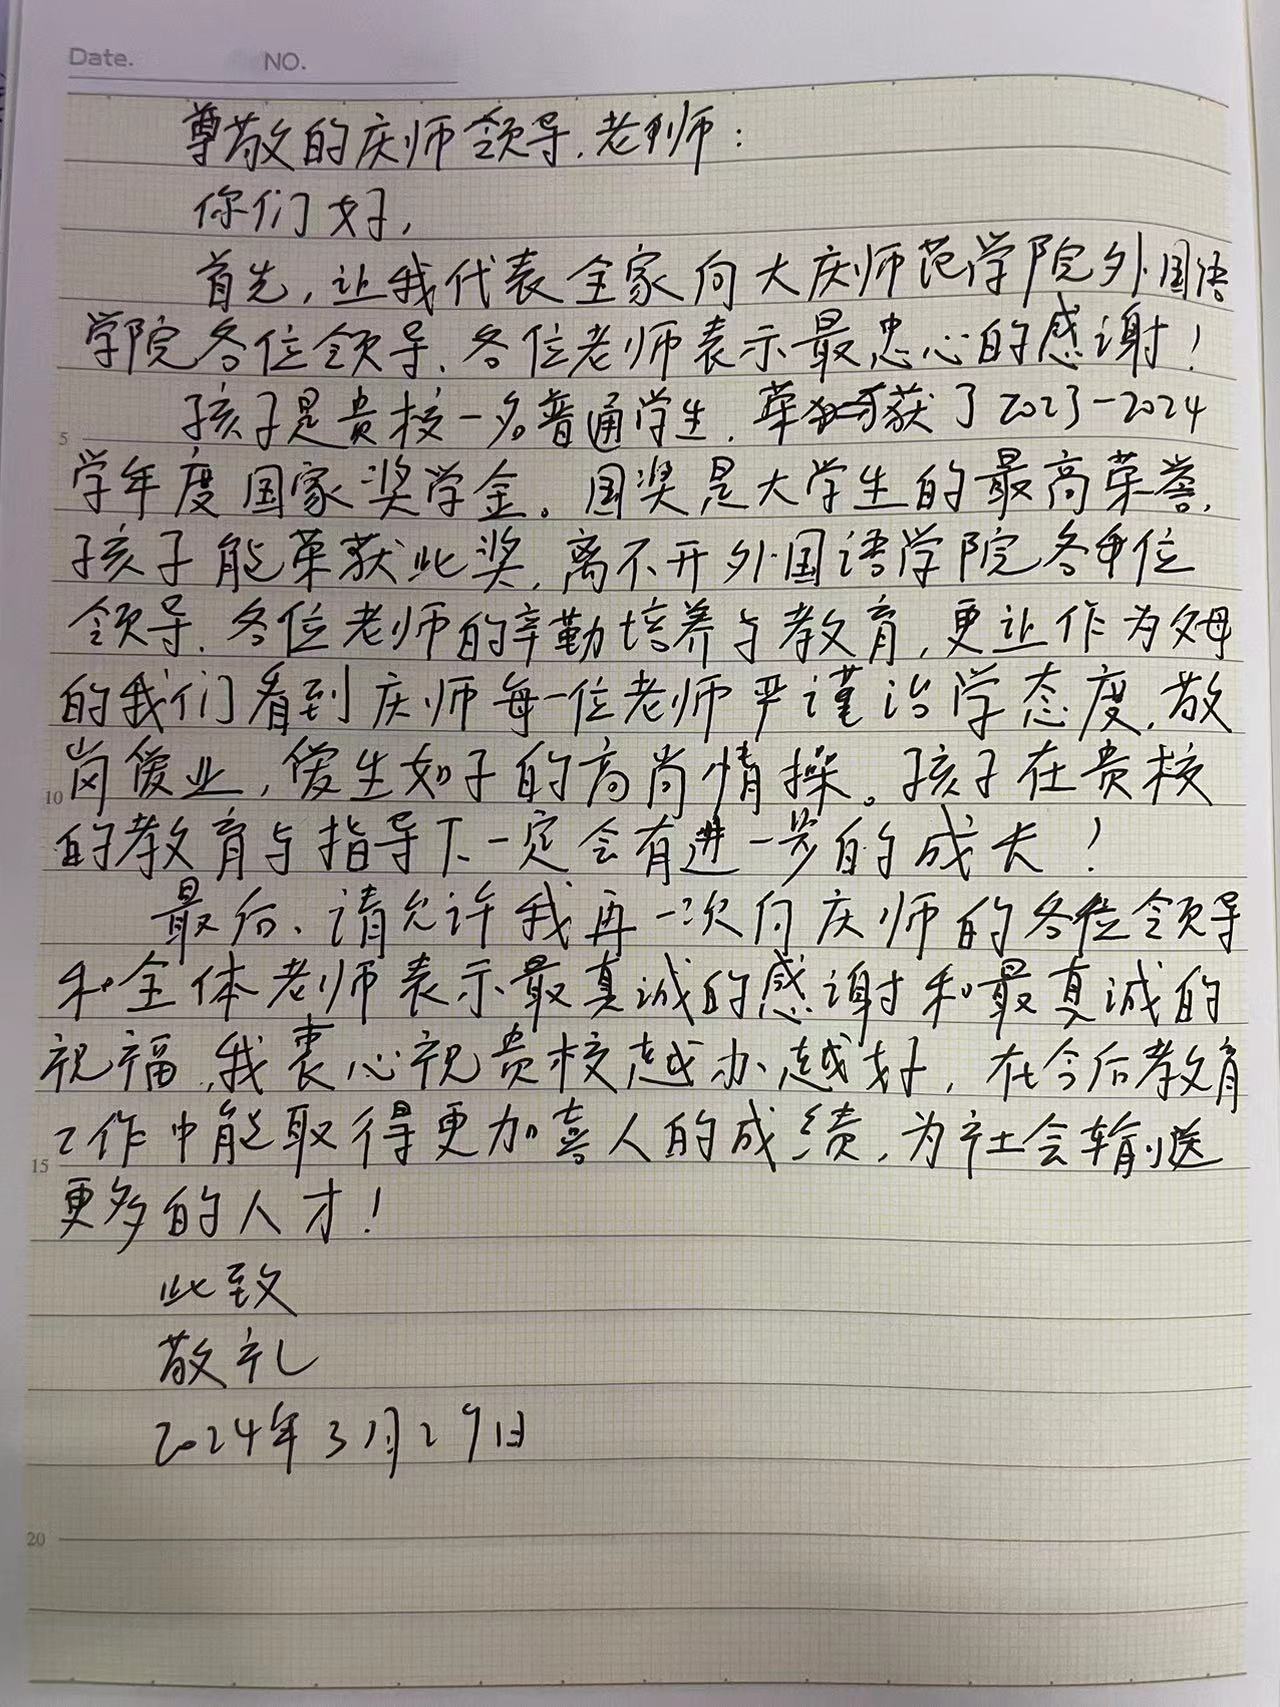 Date. NO.
尊敬的庆师领导.老师：
你们好，
首先，让我代表全家向大庆师范学院外国语
学院各位领导.各位老师表示最忠心的感谢！
5 孩子是贵校一名普通学生.荣获了2023-2024
学年度国家奖学金。国奖是大学生的最高荣誉.
孩子能荣获此奖.离不开外国语学院各位
领导.各位老师的辛勤培养与教育,更让作为父母
的我们看到庆师每一位老师严谨治学态度.敬
10 岗爱业,爱生如子的高尚情操。孩子在贵校
的教育与指导下一定会有进一步的成长！
最后、请允许我再一次向庆师的各位领导
和全体老师表示最真诚的感谢和最真诚的
祝福,我衷心祝贵校越办越好,在今后教育
15 工作中能取得更加喜人的成绩,为社会输送
更多的人才！
此致
敬礼
2024年3月29日
20